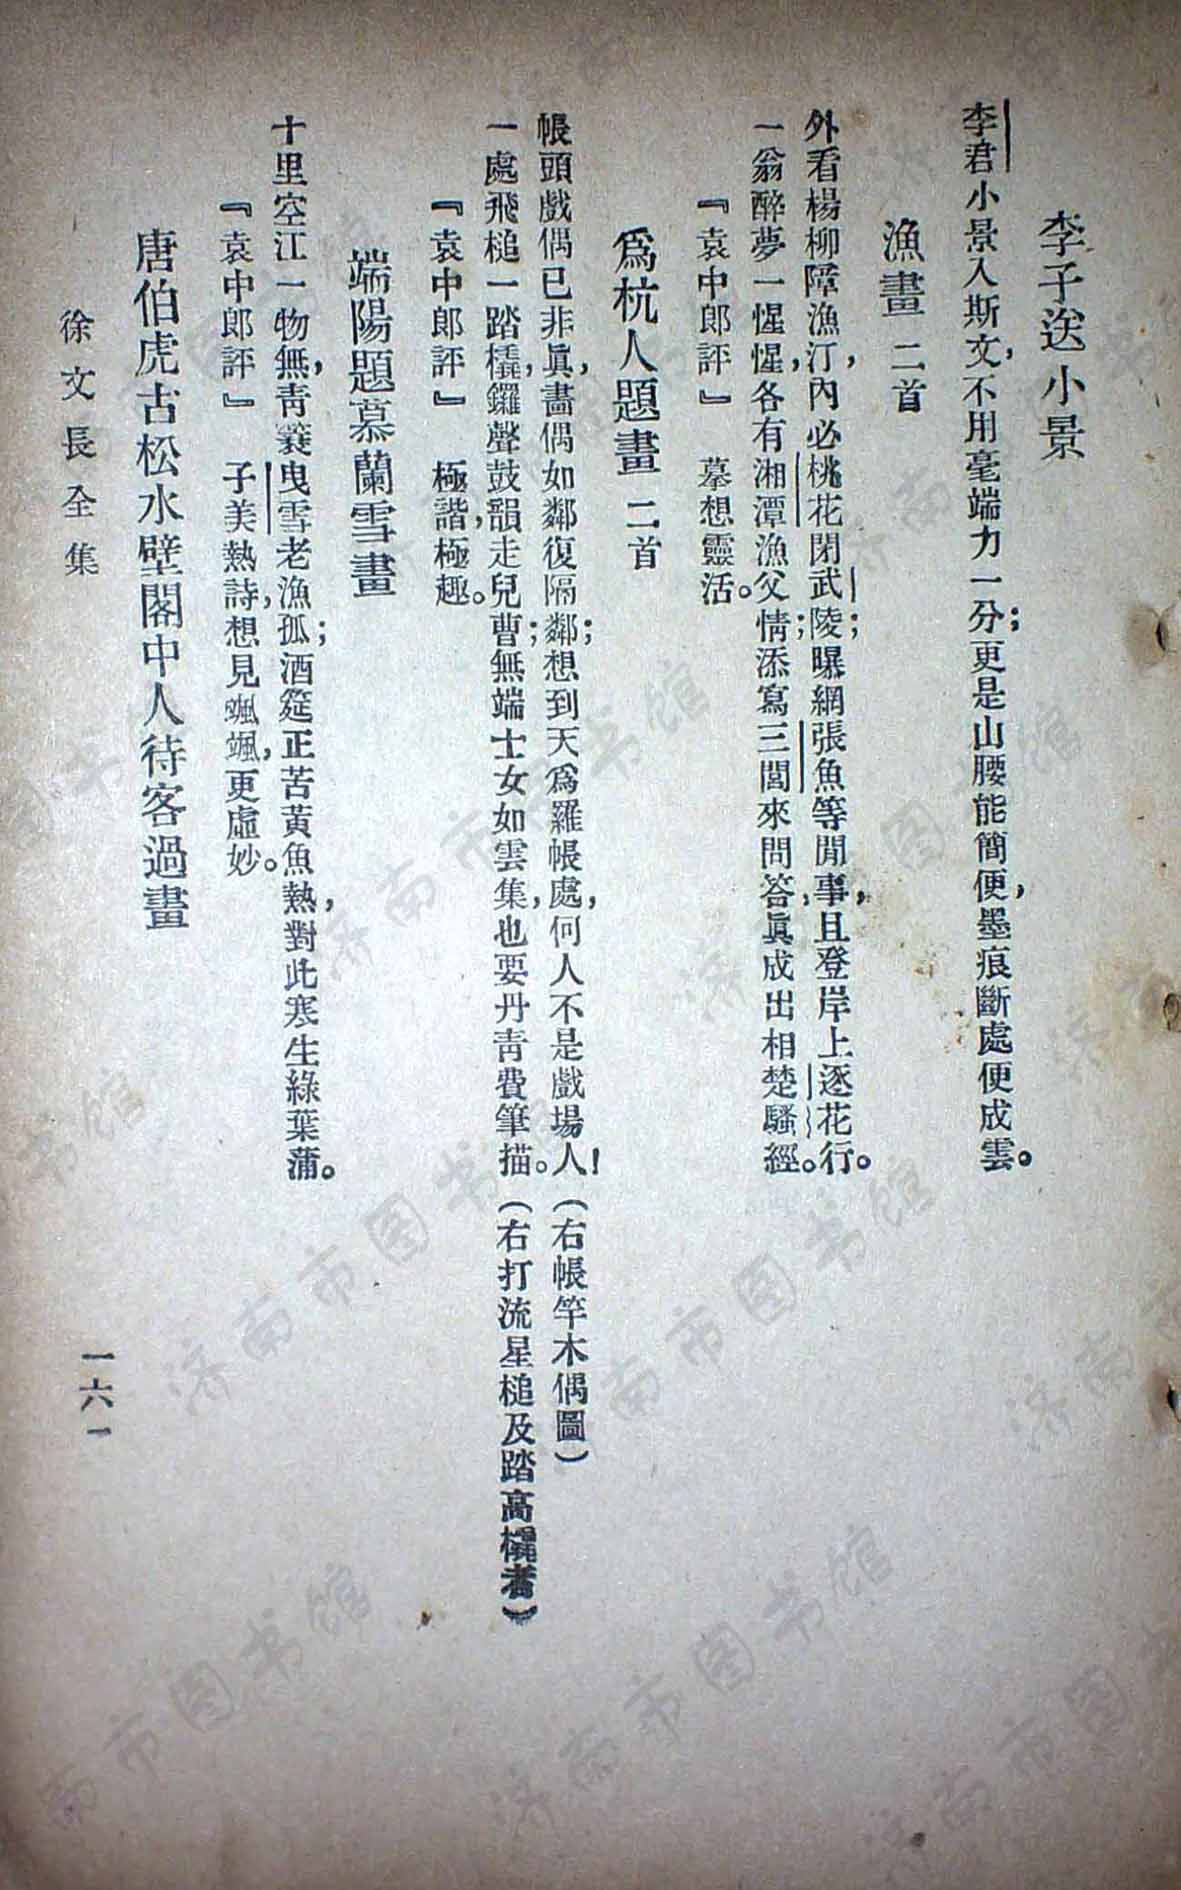 李子送小景
李君小景入斯文，不用毫端力一分；更是山腰能簡便，墨痕斷處便成雲。
漁畫 二首
外看楊柳障漁汀，內必桃花閉武陵；曝網張魚等閒事，且登岸上逐花行。
一翁醉夢一惺惺，各有湘潭漁父情；添寫三閭來問答，眞成出相楚騷經。
『袁中郎評』 摹想靈活。
爲杭人題畫 二首
帳頭戲偶已非眞，畫偶如鄰復隔鄰；想到天爲羅帳處，何人不是戲場人！（右帳竿木偶圖）
一處飛槌一踏橇，鑼聲鼓韻走兒曹；無端士女如雲集，也要丹靑費筆描。（右打流星槌及踏高橇者）
『袁中郎評』 極諧，極趣。
端陽題慕蘭雪畫
十里空江一物無，靑簑曳雪老漁孤；酒筵正苦黃魚熱，對此寒生綠葉蒲。
『袁中郎評』 子美熱詩，想見颯颯，更虛妙。
唐伯虎古松水壁閣中人待客過畫
徐文長全集
一六一
济南市图书馆